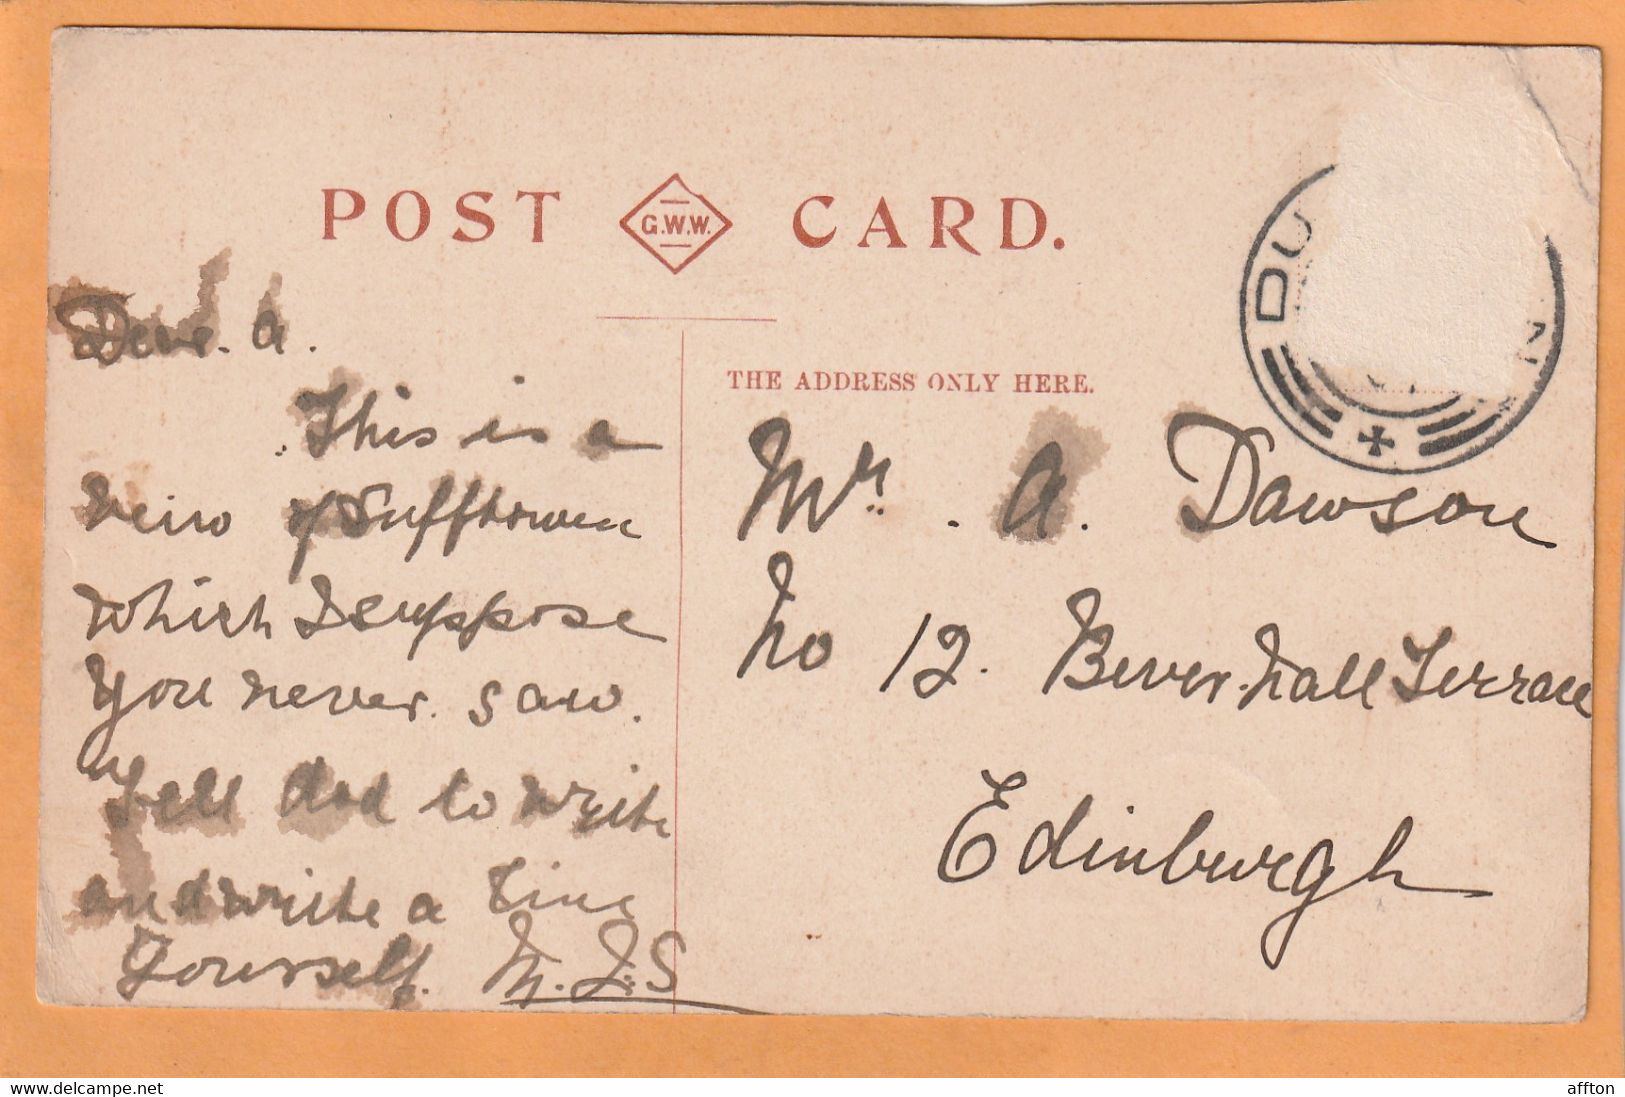 POST G.W.W. CARD.
Dear. A.
This is a
view of Dufftown
which I suppose
you never. saw.
Tell dad to write
and write a line
Yourself. M. J. S
THE ADDRESS ONLY HERE.
Mr. A. Dawson
No 12. Beverhall Terrace
Edinburgh
DU N
affton